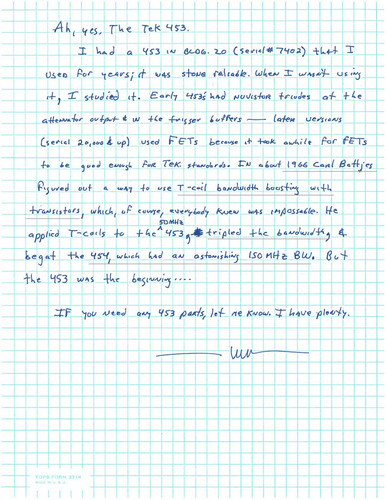 Ah, yes. The Tek 453.
I had a 453 in BLDG. 20 (serial # 7402) that I
used for years; it was stone reliable. When I wasn't using
it, I studied it. Early 453's had nuvistor triodes at the
attenuator output & in the trigger buffers — later versions
(serial 20,000 & up) used FETs because it took awhile for FETs
to be good enough for Tek standards. In about 1966 Carl Battjes
figured out a way to use T-coil bandwidth boosting with
transistors, which, of course, everybody knew was impossable. He
applied T-coils to the 50MHz 453, tripled the bandwidth, &
begat the 454, which had an astonishing 150 MHz BW. But
the 453 was the beginning....
If you need any 453 parts, let me know. I have plenty.